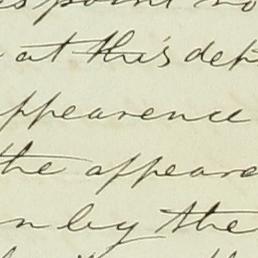 point no
at this dep
ppearence
the appeare
n by the